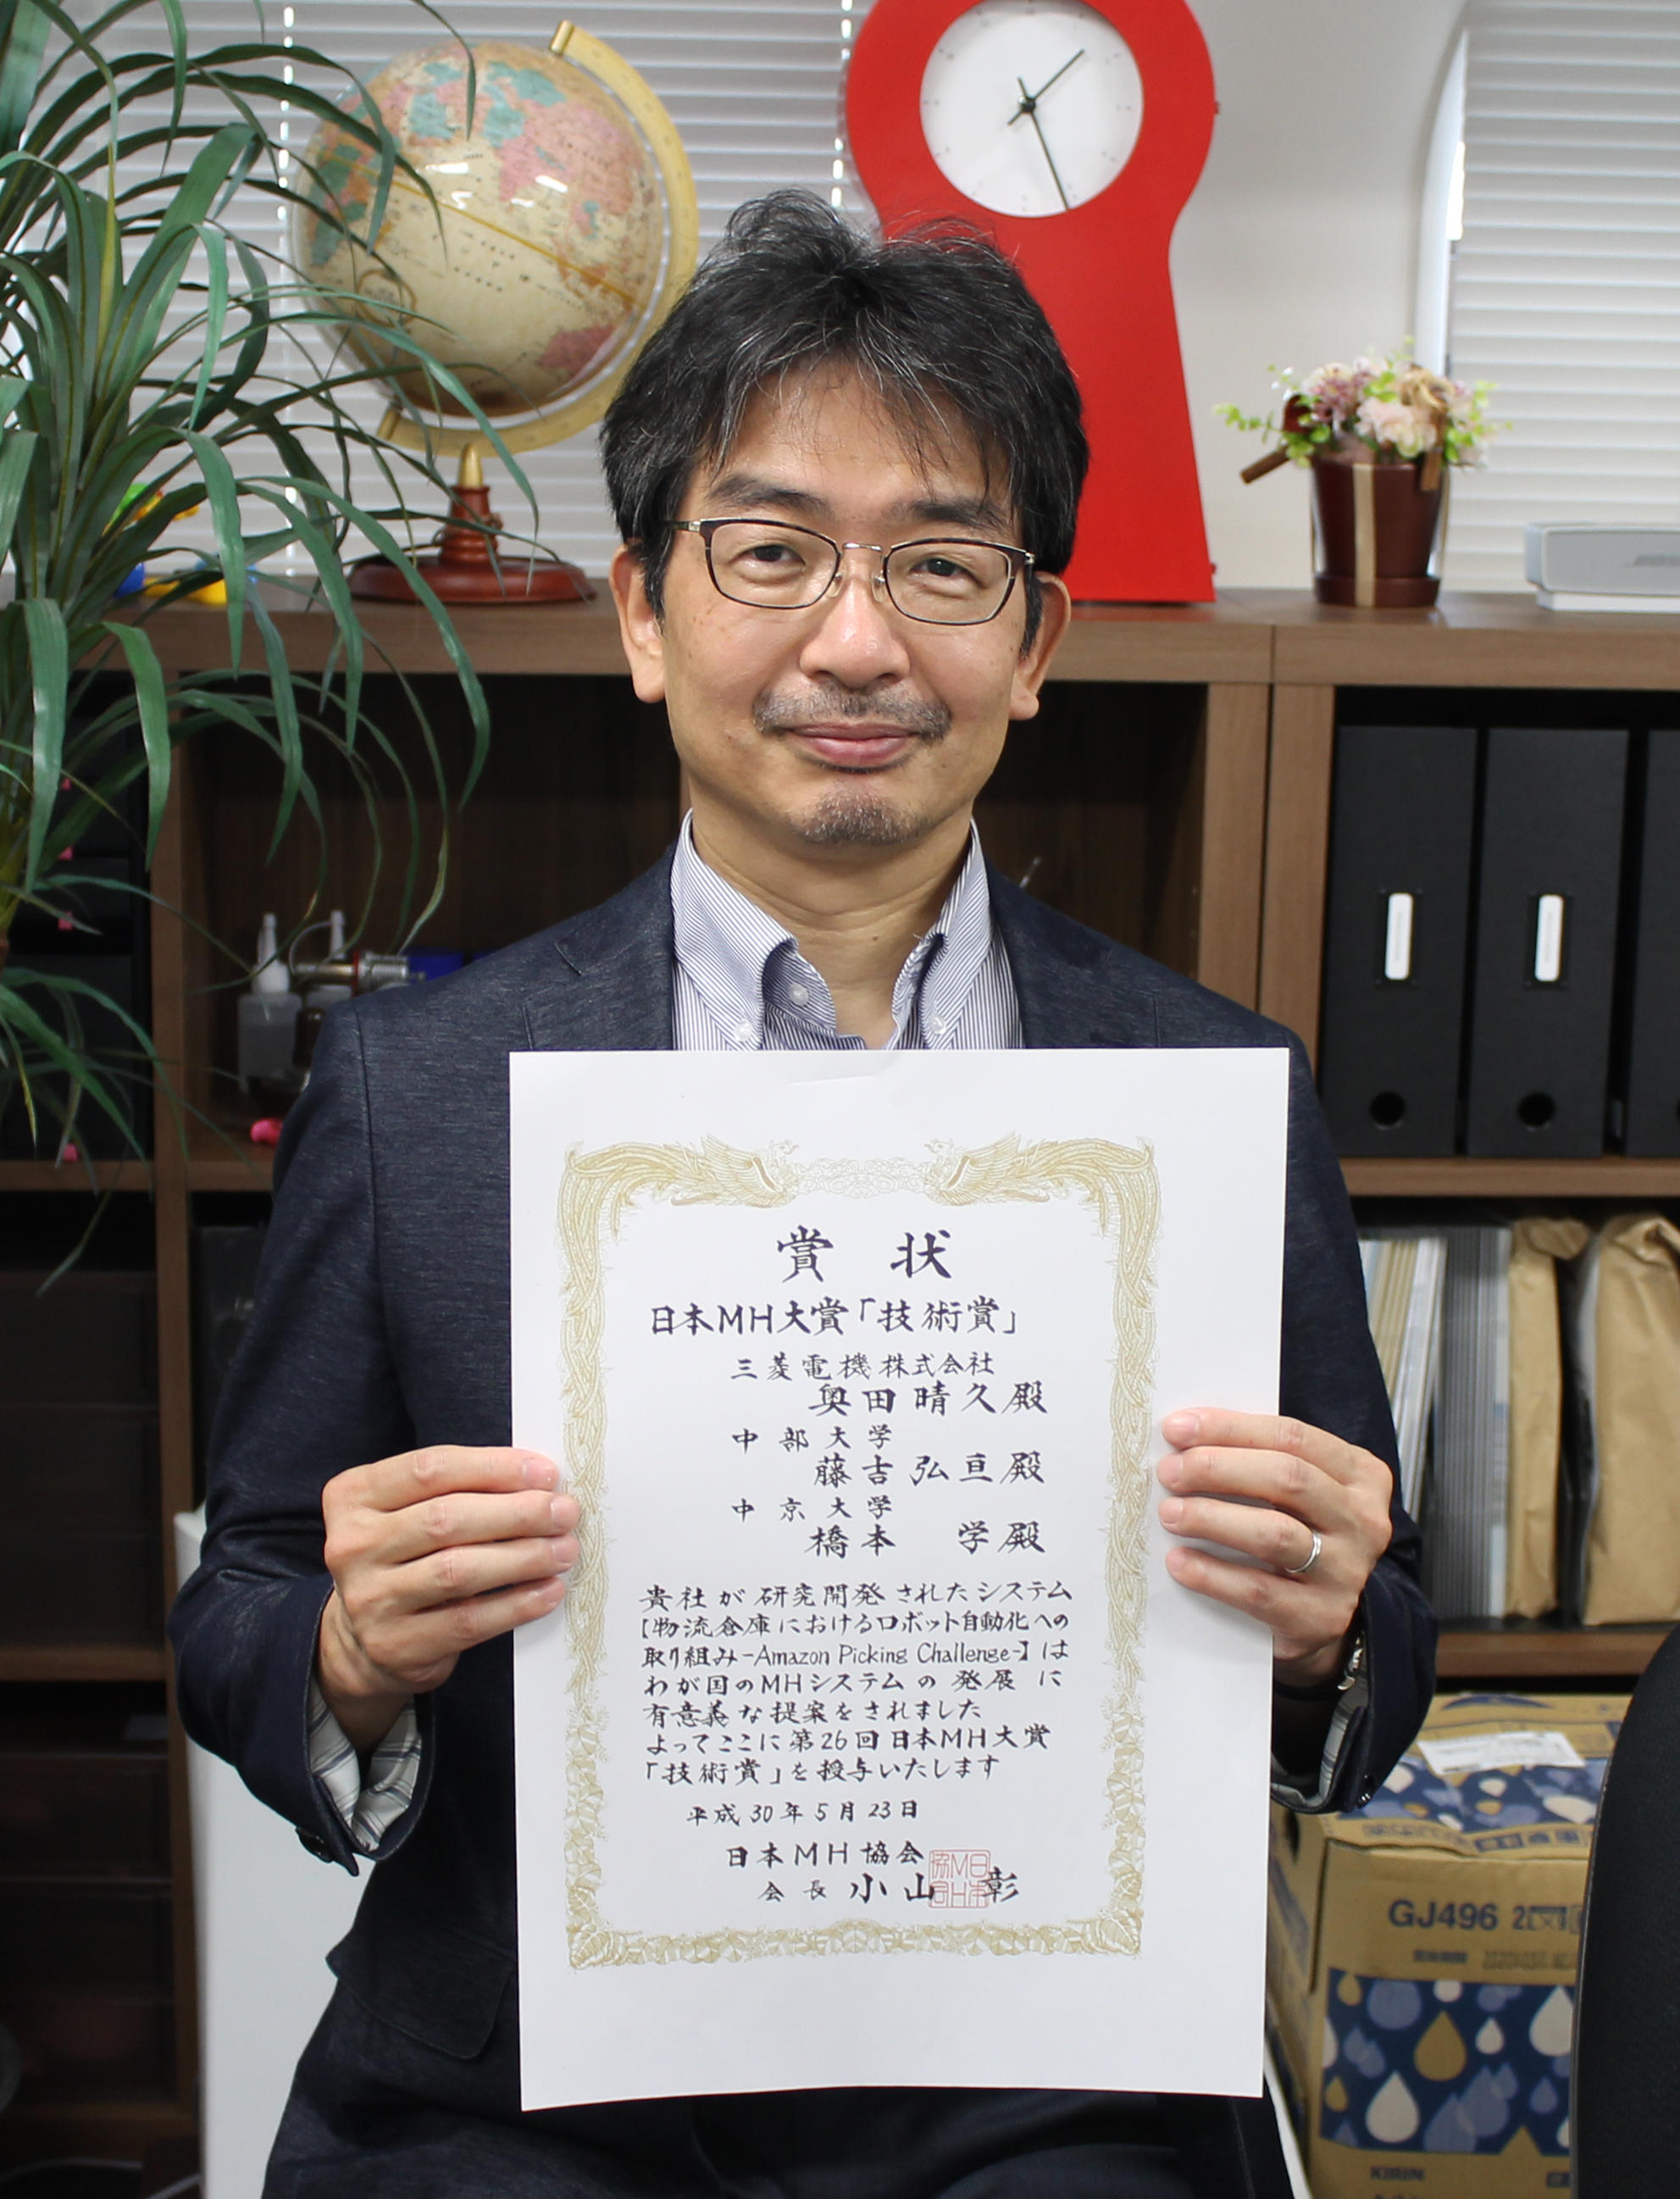 賞状
日本MH大賞「技術賞」
三菱電機株式会社
奥田晴久殿
中部大学
藤吉弘亘殿
中京大学
橋本 学殿
貴社が研究開発されたシステム
【物流倉庫におけるロボット自動化への
取り組み-Amazon Picking Challenge-】は
わが国のMHシステムの発展に
有意義な提案をされました
よってここに第26回日本MH大賞
「技術賞」を授与いたします
平成30年5月23日
日本MH協会
会長 小山 彰
GJ496
KIRIN